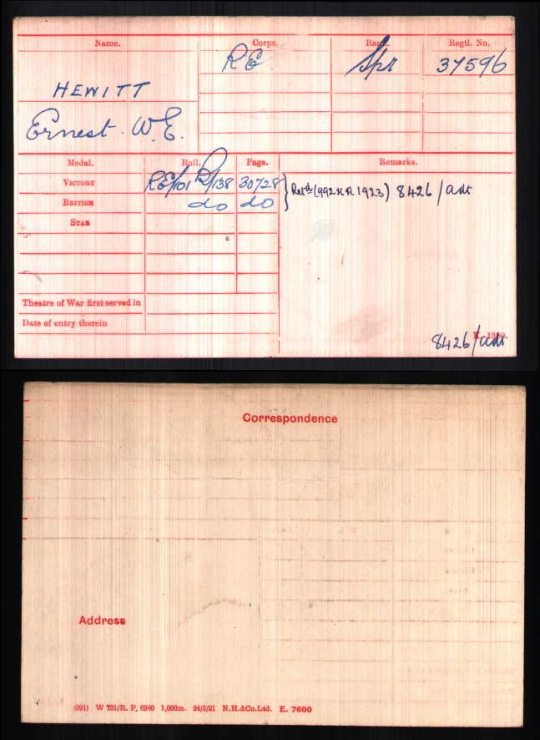 Name. Corps. Rank. Regtl. No.
HEWITT RE Spr 37596
Ernest W.E.
Medal. Roll. Page. Remarks.
VICTORY RE/101 B/138 30728 } Retd (992 K R 1923) 8426/adt
BRITISH do do
STAR
Theatre of War first served in
Date of entry therein
8426/adt
Correspondence
Address
(991) W 701/R. P. 6980 1,000m. 24/5/21 N.H.&Co.Ltd. E. 7600